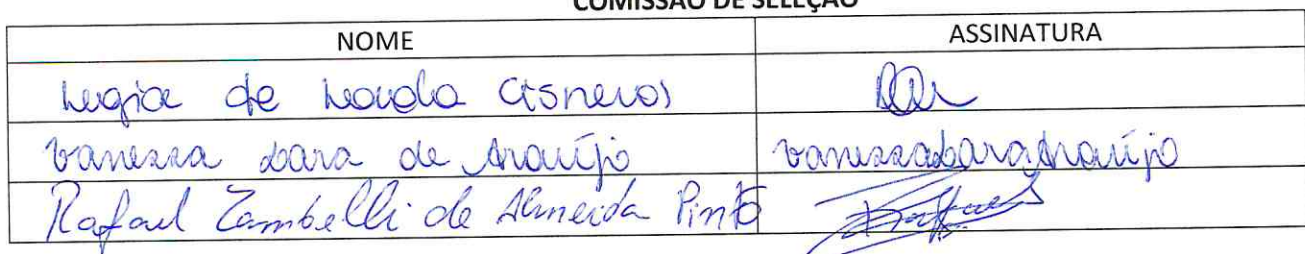 COMISSÃO DE SELEÇÃO
NOME ASSINATURA
de Cisneros
Vanessa Lara de Araújo Vanessa Lara Araújo
Rafael Zambelli de Almeida Pinto